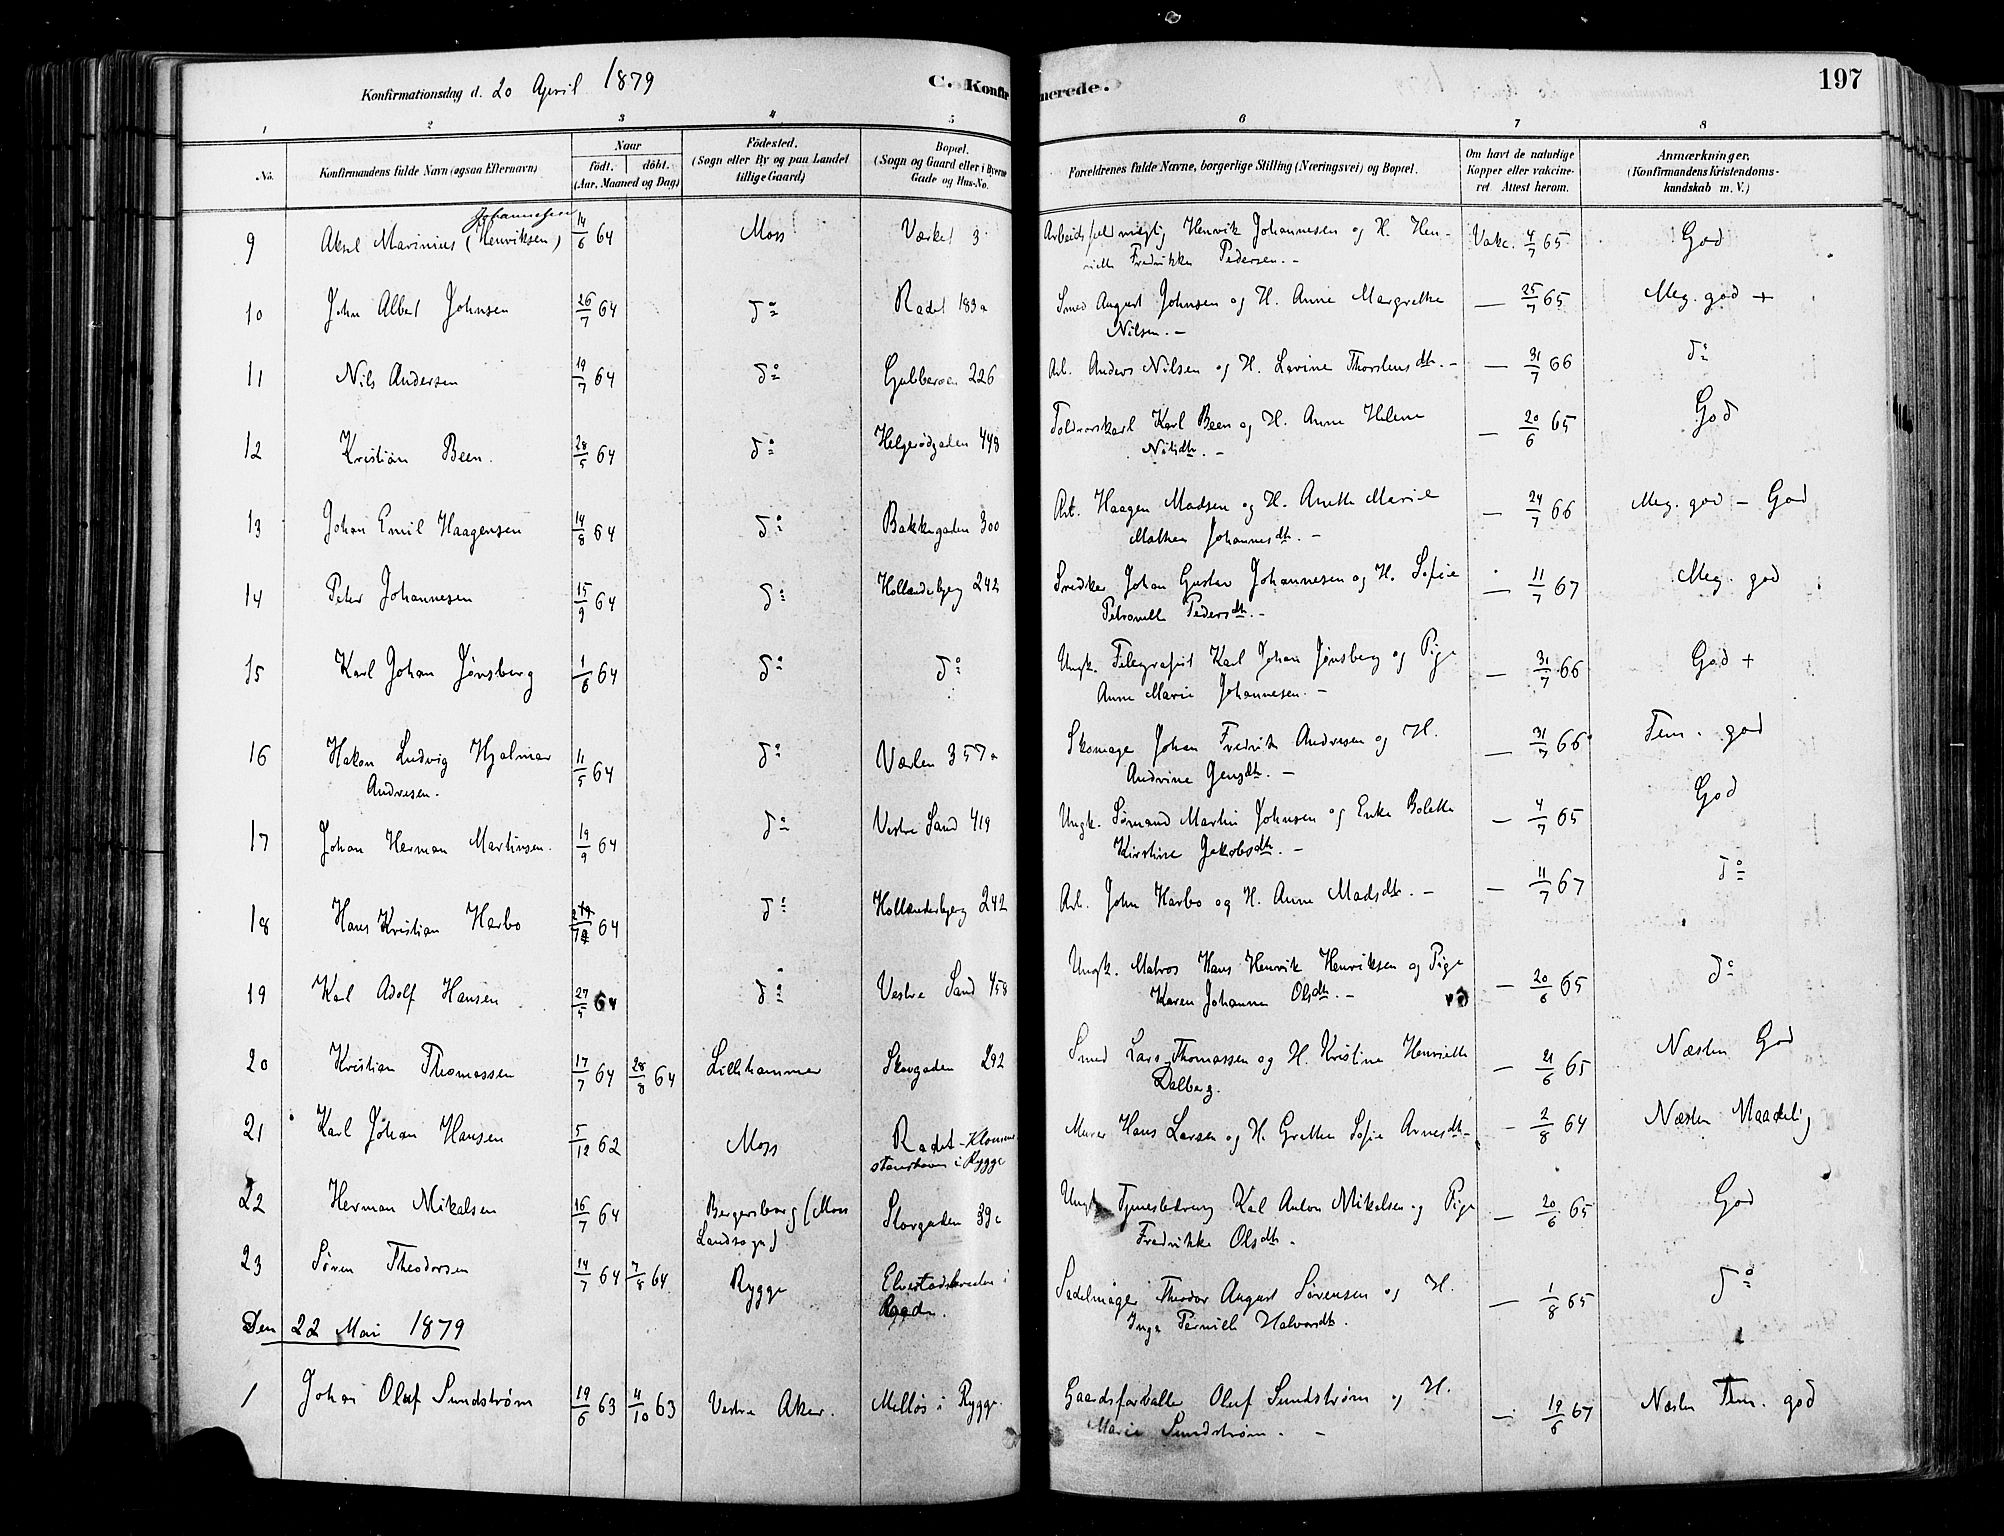 Konfirmationsdag d. 20 April 1879
C. Konfirmerede.
197
1 2 3 4 5 6 7 8
No.
Konfirmandens fulde Navn (ogsaa Efternavn)
Naar
født. døbt.
(Aar, Maaned og Dag)
Fødested.
(Sogn eller By og paa Landet
tillige Gaard)
Bopæl.
(Sogn og Gaard eller i Byerne
Gade og Hus-No.
Forældrenes fulde Navne, borgerlige Stilling (Næringsvei) og Bopæl.
Om havt de naturlige
Kopper eller vakcine-
ret. Attest herom.
Anmærkninger.
(Konfirmandens Kristendoms-
kundskab m. V.)
Johannesen
9 Aksel Marinius (Henriksen) 14/6 64 Moss Værket 3 Henrik Johannesen og H. Hen- Vakc. 4/7 65 God
riette Fredrikke Pedersen. -
10 John Albert Johnsen 26/7 64 do Radet 183a Smed August Johnsen og H. Anne Margrethe — 25/7 65 Meg. god +
Nilsen. -
11 Nils Andersen 19/7 64 do 226 Arb. Anders Nilsen og H. Lovine Thorstensdtr. - — 31/7 66 do
12 Kristian Been. 28/5 64 do Helgerødgaden 448 Karl Been og H. Anne Helene — 20/6 65 God
Nilsdtr. -
13 Johan Emil Haagensen 14/8 64 do Bakkegaden 300 Arb. Haagen Madsen og H. Anette Marie — 24/7 66 Meg. god - God
Mathea Johannesdtr. -
14 Peter Johannesen 15/9 64 do Hollenderbjerg 242 Snedker Johan Gustav Johannesen og H. Sofie — 11/7 67 Meg. god
Petronelle Pedersdtr. -
15 Karl Johan Jønsberg 1/6 64 do do Ungk. Telegrafist Karl Johan Jønsberg og Pige — 31/7 66 God +
Anne Marie Johannesen. -
16 Hakon Ludvig Hjalmar 11/5 64 do Værlen 357a Skomager Johan Fredrik Andresen og H. — 31/7 66 Tem. god
Andresen. Andrine Jensdtr. -
17 Johan Herman Martinsen. 19/9 64 do Vestre Sand 419 Ungk. Sømand Martin Johnsen og Enke Bolette — 4/7 65 God
Kirstine Jakobsdtr. -
18 Hans Kristian Harbo 64 do Hollenderbjerg 242 Arb. John Harbo og H. Anne Madsdtr. - — 11/7 67 do
19 Karl Adolf Hansen 27/5 64 do Vestre Sand 458 Ungk. Matros Hans Henrik Henriksen og Pige — 20/6 65 do
Karen Johanne Olsdtr. -
20 Kristian Thomassen 17/7 64 28/8 64 Lillehammer Skovgaden 292 Smed Lars Thomassen og H. Kristine Henriette — 21/6 65 Næsten God
Dalberg.
21 Karl Johan Hansen 5/12 62 Moss Radet - i Rygge Murer Hans Larsen og H. Grethe Sofie Arnesdtr. - — 2/8 64 Næsten Maadelig
22 Herman Mikalsen 16/7 64 Bergersborg (Moss Storgaden 39c Ungk. Tjenestedreng Karl Anton Mikalsen og Pige — 20/6 65 God
Landsogn) Fredrikke Olsdtr.
23 Søren Theodorsen 14/7 64 7/8 64 Rygge i Sadelmager Theodor August Sørensen og H. — 1/8 65 do
Inge Pernille Halvorsdtr.
Den 22 Mai 1879
1 Johan Oluf Sundstrøm 19/6 63 4/10 63 Vestre Aker. Melløs i Rygge. Gaardsforvalter Oluf Sundstrøm og H. — 19/6 67 Næsten Tem. god
Marie Sundstrøm. -